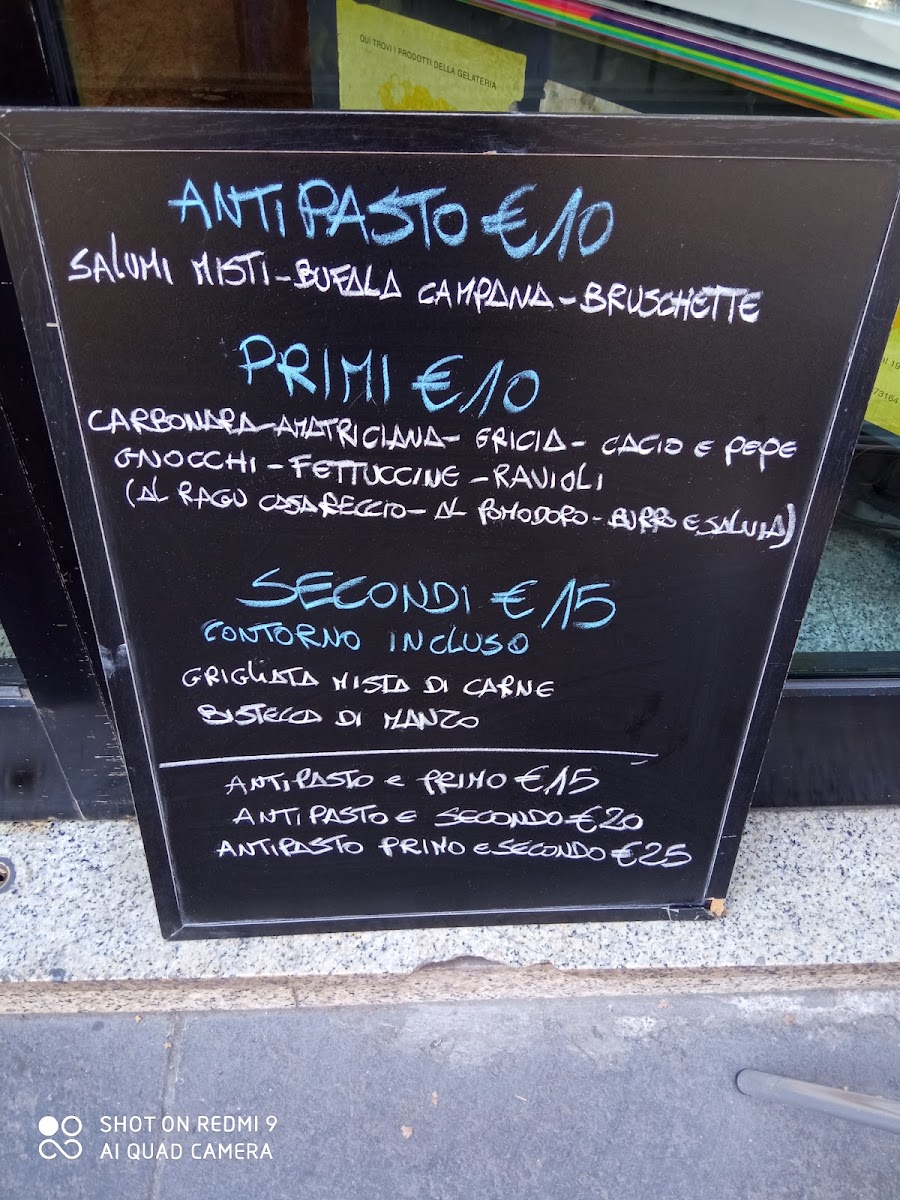 QUI TROVI I PRODOTTI DELLA GELATERIA
ANTIPASTO €10
SALUMI MISTI-BUFALA CAMPANA-BRUSCHETTE
PRIMI €10
CARBONARA-AMATRICIANA-GRICIA-CACIO E PEPE
GNOCCHI-FETTUCCINE-RAVIOLI
(AL RAGU CASARECCIO-AL POMODORO-BURRO E SALVIA)
SECONDI €15
CONTORNO INCLUSO
GRIGLIATA MISTA DI CARNE
BISTECCA DI MANZO
ANTIPASTO E PRIMO €15
ANTIPASTO E SECONDO €20
ANTIPASTO PRIMO E SECONDO €25
SHOT ON REDMI 9
AI QUAD CAMERA